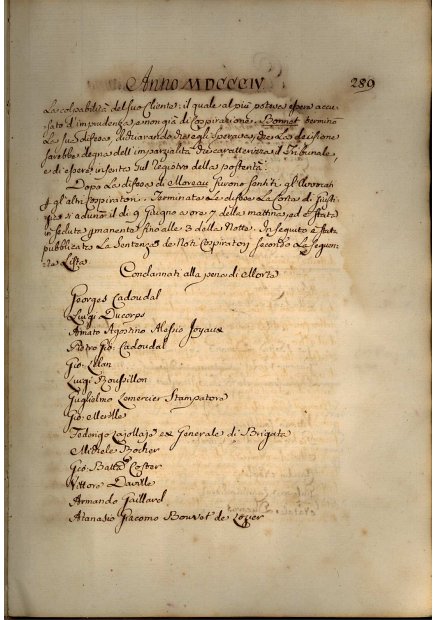 Anno MDCCCIV 289
La colpabilità del suo Cliente: il quale al più poteva essere accu-
sato d'imprudenza, e non già di Cospirazione. Bonnet terminò
la sua difesa, dichiarando ch'egli sperava, che la decisione
sarebbe degna dell'imparzialità che caratterizza il Tribunale,
e di essere inserita sul Registro della posterità.
Dopo la difesa di Moreau furono sentiti gl'Avvocati
gl'altri Cospiratori. Terminate le difese la Corte di Giusti-
zia si adunò il dì 9 Giugno a ore 7 della mattina, ed è stata
in seduta permanente fino alle 3 della Notte. In seguito è stata
pubblicata la Sentenza de Noti Cospiratori secondo la seguen-
te Lista
Condannati alla pena di Morte
Georges Cadoudal
Luigi Ducorps
Amato Agostino Alessio Joyaux
Pietro Gio: Cadoudal
Gio: Lelan
Luigi Roussillon
Guglielmo Lemercier Stampatore
Gio: Merille
Federigo Lajollajs ex Generale di Brigata
Michele Rocher
Gio: Batta Coster
Vittore Daville
Armando Gaillard
Atanasio Giacomo Bouvet de Lozier